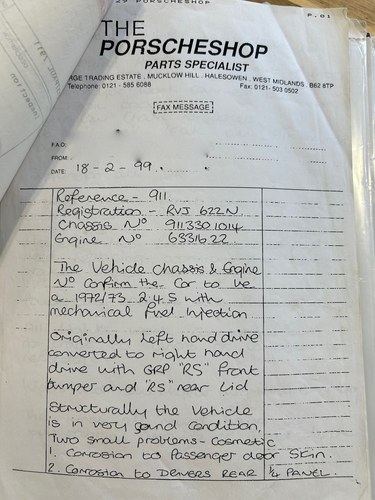 29 PORSCHESHOP
P.01
THE
PORSCHESHOP
PARTS SPECIALIST
AGE TRADING ESTATE . MUCKLOW HILL . HALESOWEN . WEST MIDLANDS B62 8TP
Telephone: 0121 - 585 6088 Fax: 0121- 503 0502
FAX MESSAGE
F.A.O:
FROM:
DATE: 18 - 2 - 99.
Reference - 911.
Registration - RVJ 622N.
Chassis No 9113301014
Engine No 6331622
The Vehicle chassis & Engine
No confirm the Car to be
a 1972/73 2.4 S with
mechanical fuel injection
Originally left hand drive
converted to right hand
drive with GRP "RS" front
bumper and "RS" rear lid
Structurally the vehicle
is in very good condition.
Two small problems - Cosmetic
1. Corrosion to Passenger door Skin.
2. Corrosion to DRIVERS REAR 1/4 PANEL.